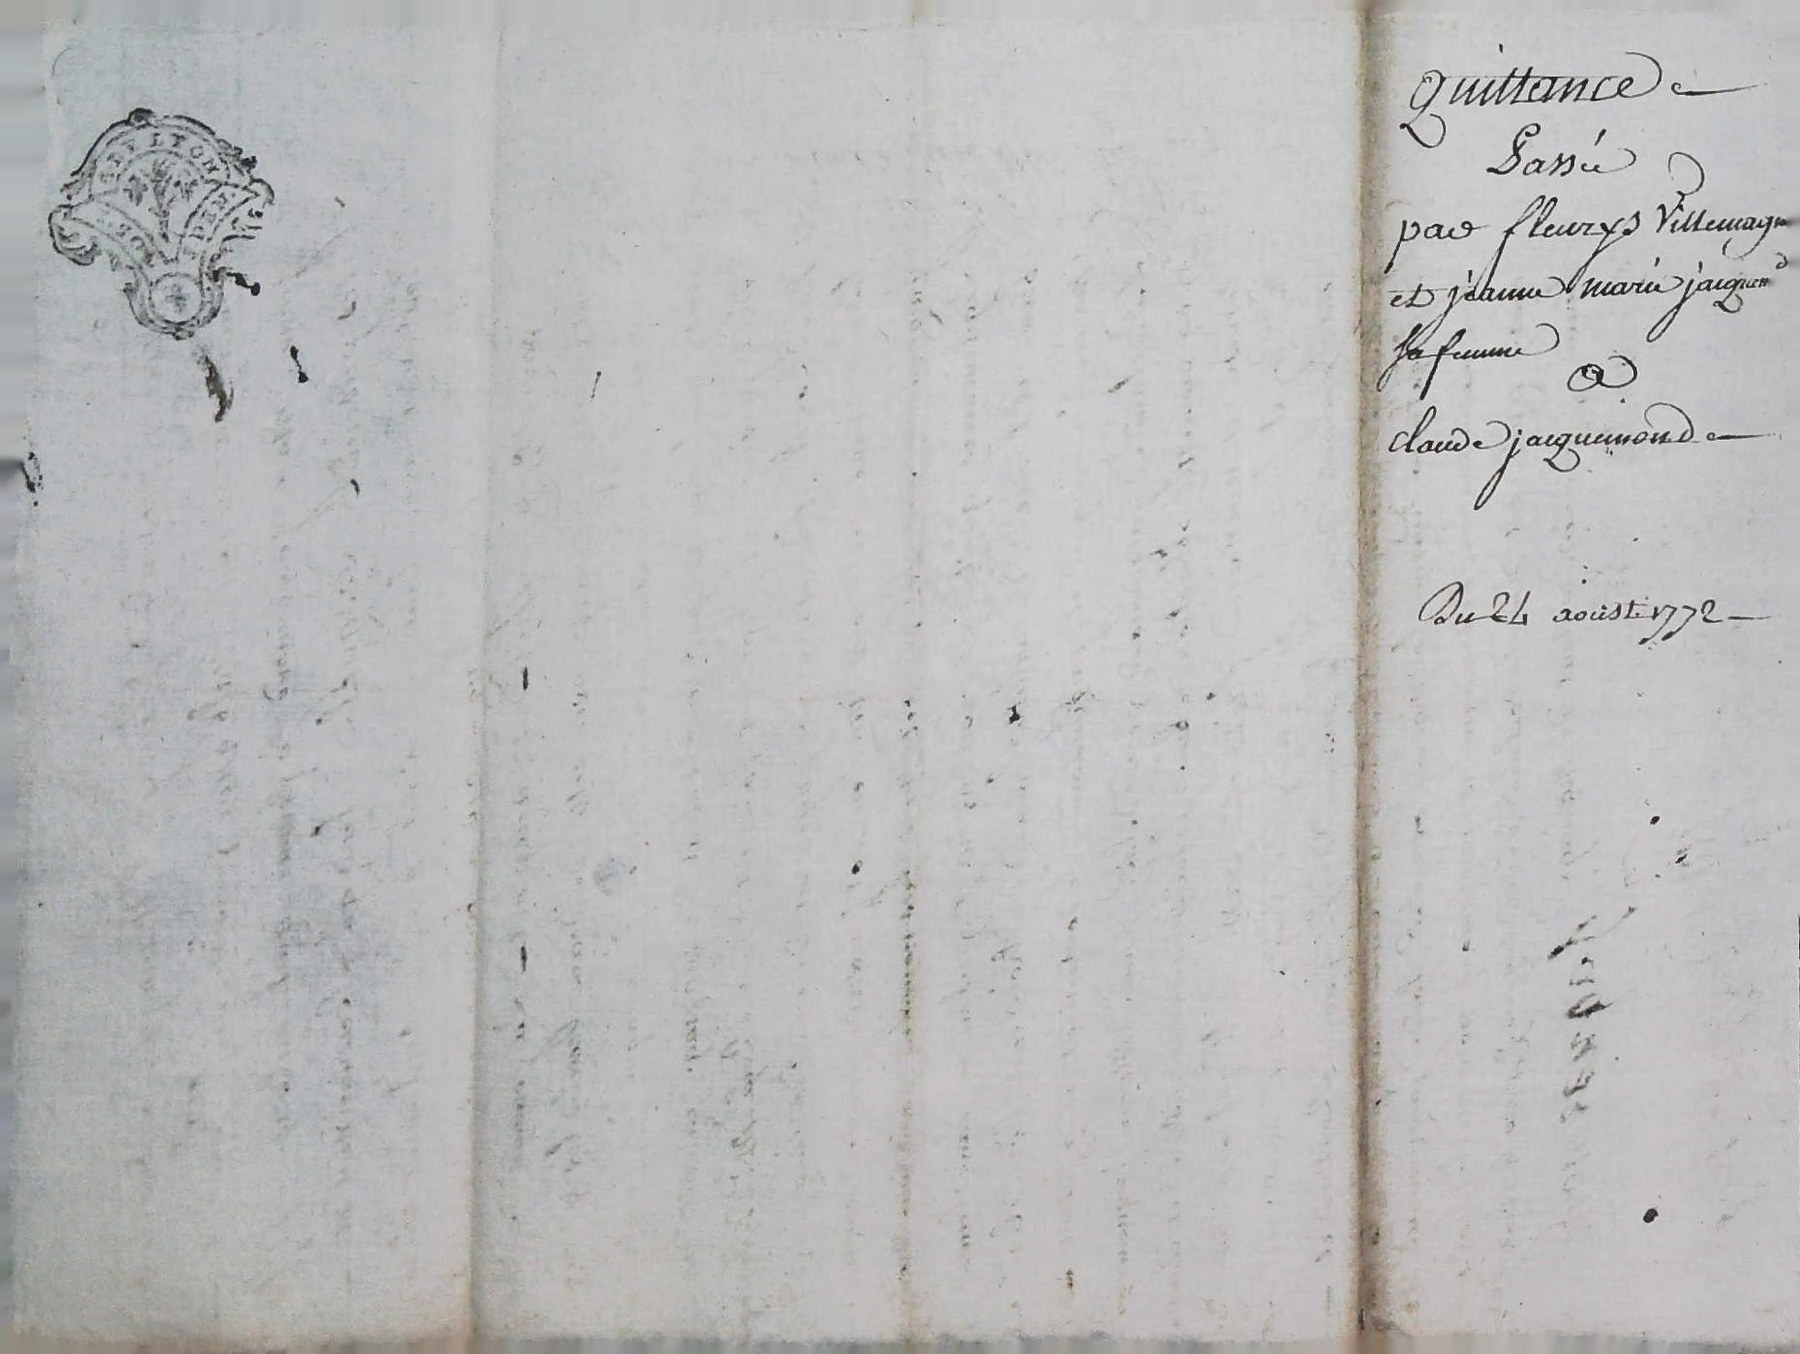 GEN DE LYON
DEUX SOLS
Quittance
Passée
par fleurys Villemagne
et jeanne marie jacquem.d
sa femme
a
claude jacquemond
Du 24 aoust 1772